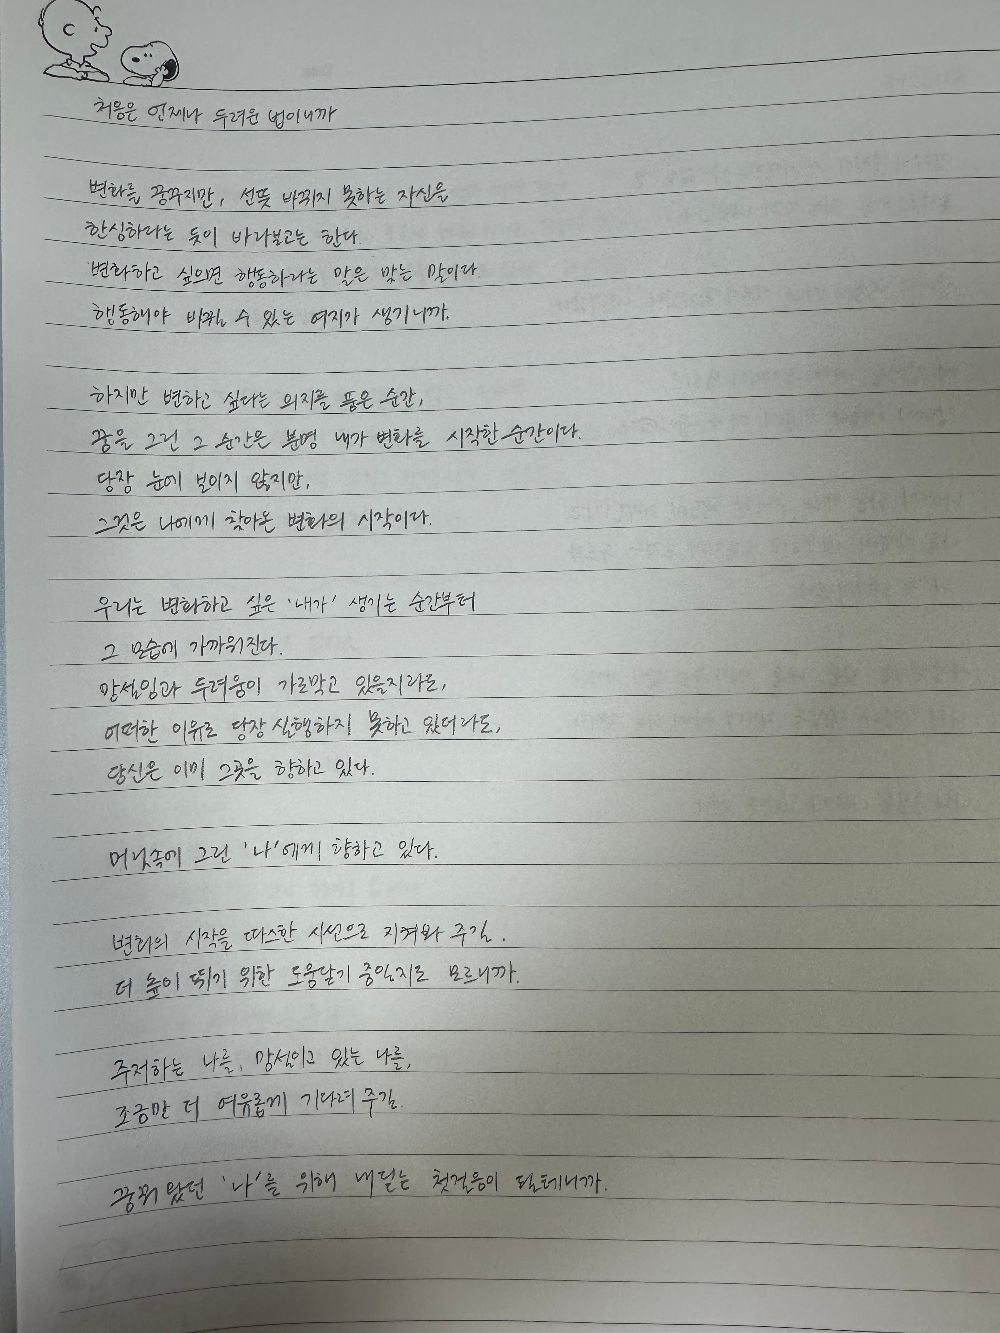 처음은 언제나 두려운 법이니까
변화를 꿈꾸지만, 선뜻 바뀌지 못하는 자신을
한심하다는 듯이 바라보고는 한다.
변화하고 싶으면 행동하라는 말은 맞는 말이다
행동해야 바뀔 수 있는 여지가 생기니까.
하지만 변하고 싶다는 의지를 품은 순간,
꿈을 그린 그 순간은 분명 내가 변화를 시작한 순간이다.
당장 눈에 보이지 않지만,
그것은 나에게 찾아온 변화의 시작이다.
우리는 변화하고 싶은 '내가' 생기는 순간부터
그 모습에 가까워진다.
망설임과 두려움이 가로막고 있을지라도,
어떠한 이유로 당장 실행하지 못하고 있더라도,
당신은 이미 그곳을 향하고 있다.
머릿속에 그린 '나'에게 향하고 있다.
변화의 시작을 따스한 시선으로 지켜봐 주길.
더 높이 뛰기 위한 도움닫기 중일지도 모르니까.
주저하는 나를, 망설이고 있는 나를,
조금만 더 여유롭게 기다려 주길.
꿈꿔 왔던 '나'를 위해 내딛는 첫걸음이 될테니까.